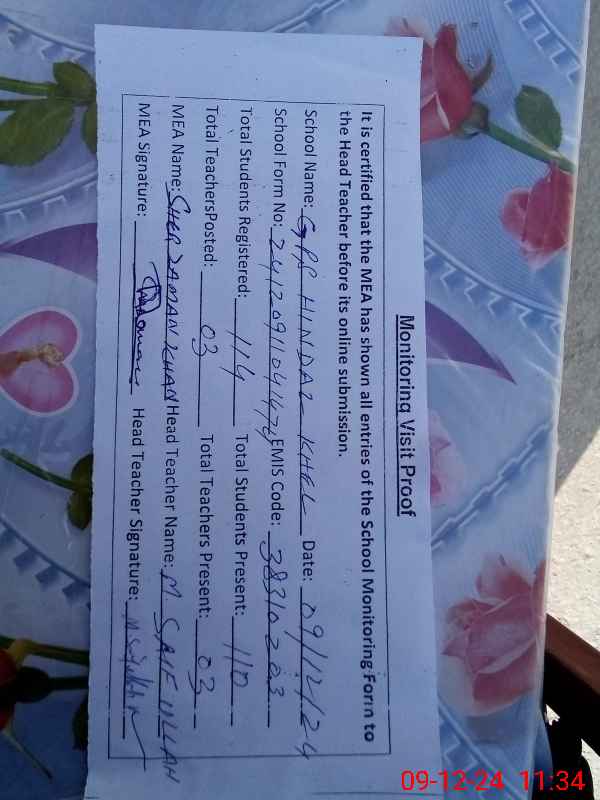 Monitoring Visit Proof
It is certified that the MEA has shown all entries of the School Monitoring Form to
the Head Teacher before its online submission.
School Name: GPS HINDAL KHEL Date: 09/12/24
School Form No: 2412091104147 EMIS Code: 38310203
Total Students Registered: 114 Total Students Present: 110
Total TeachersPosted: 03 Total Teachers Present: 03
MEA Name: SHER ZAMAN KHAN Head Teacher Name: M SAIF ULLAH
MEA Signature: Head Teacher Signature:
09-12-24 11:34